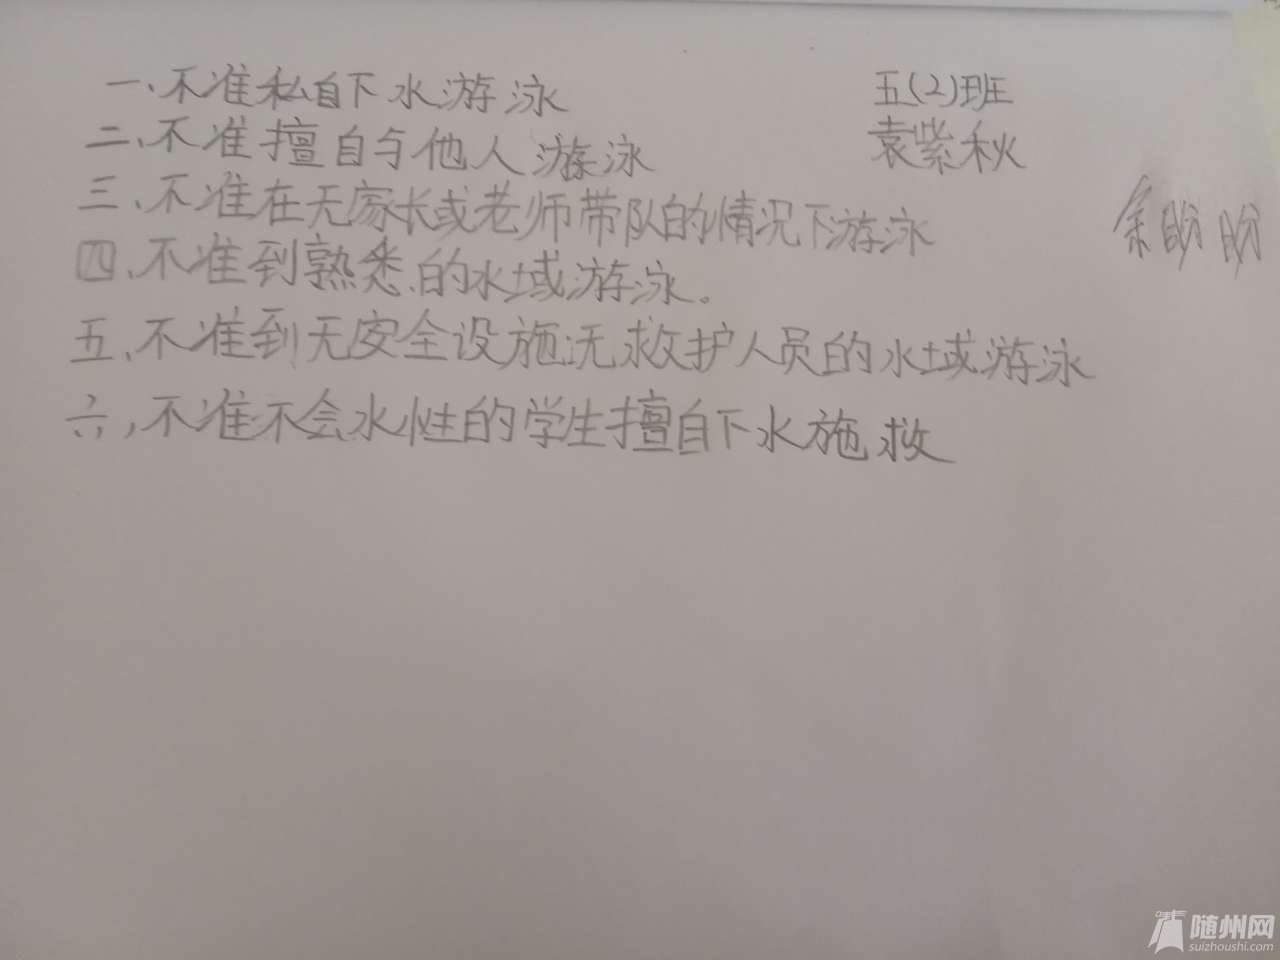 一、不准私自下水游泳
五(2)班
二、不准擅自与他人游泳
袁紫秋
三、不准在无家长或老师带队的情况下游泳
余盼盼
四、不准到熟悉的水域游泳。
五、不准到无安全设施无救护人员的水域游泳
六,不准不会水性的学生擅自下水施救
随州网
suizhoushi.com